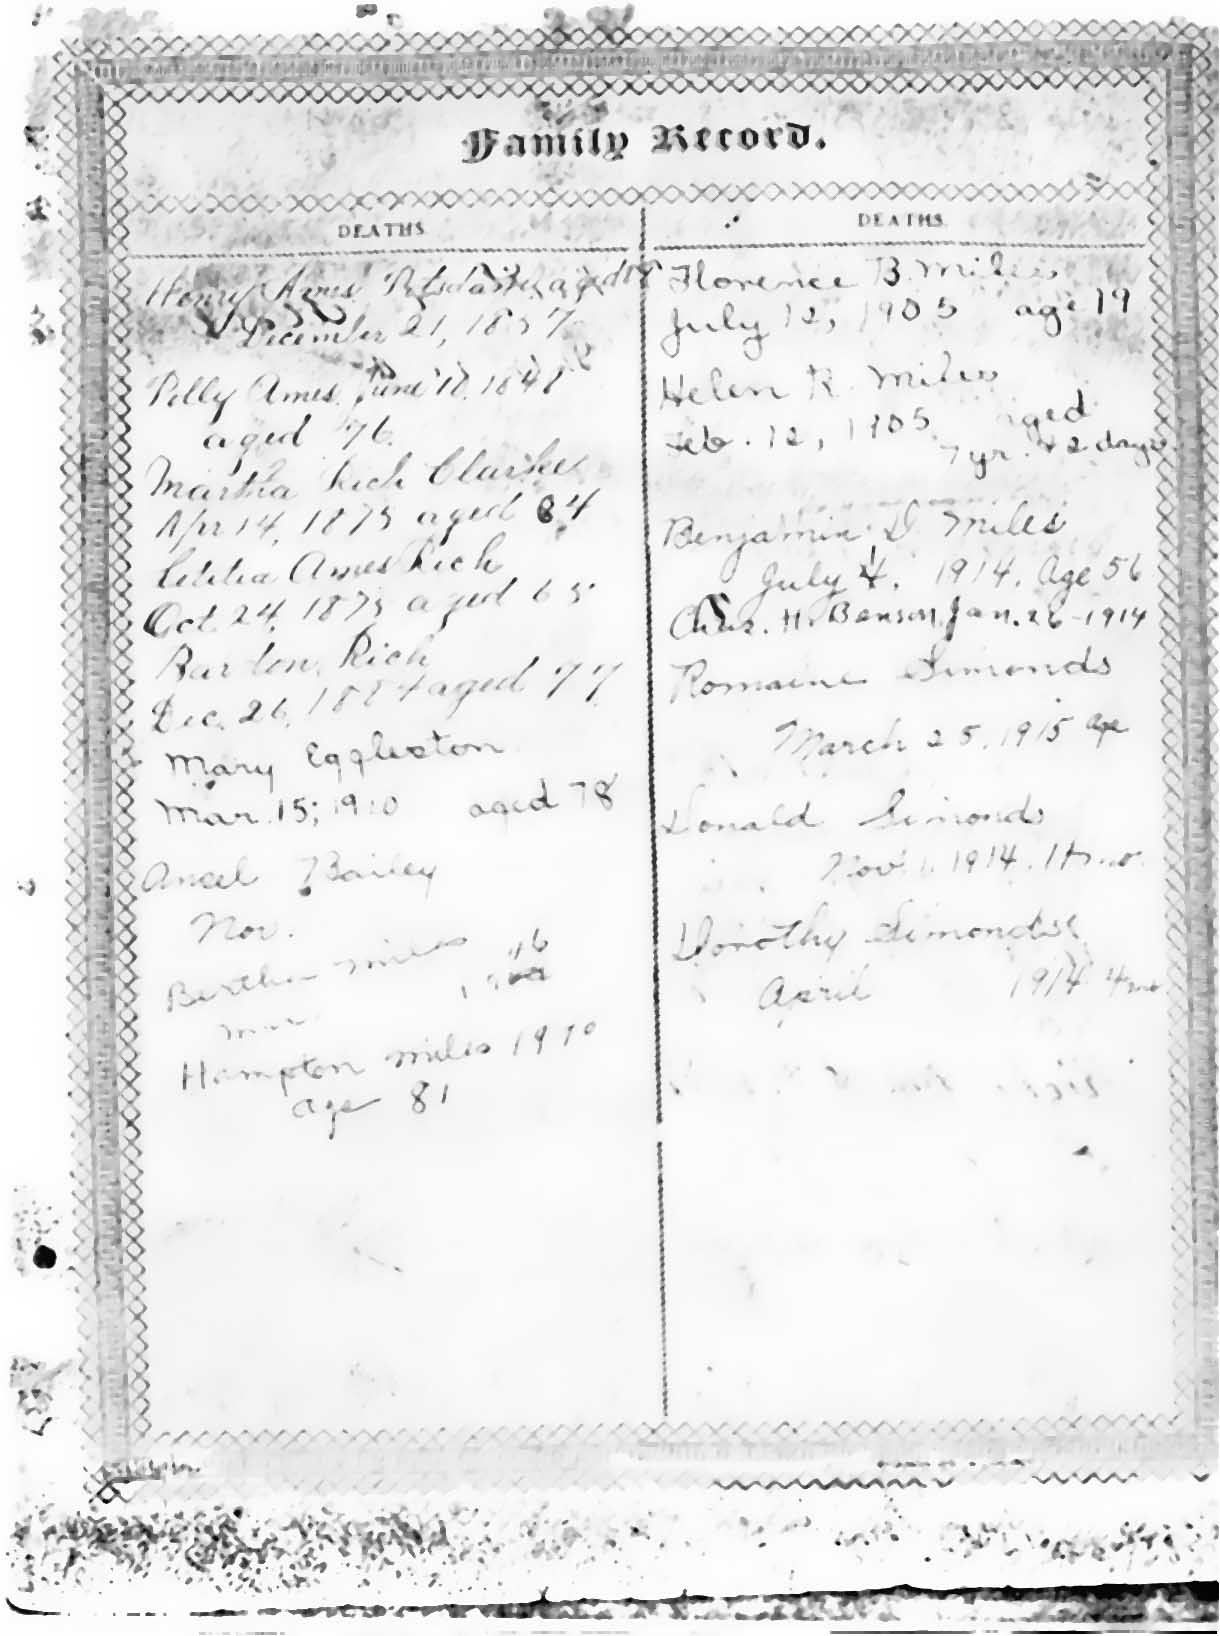 Family Record.
DEATHS
Henry Ames aged
December 21, 1857
Polly Ames June 10, 1848
aged 76
Martha Rich Clarke
Apr 14, 1875 aged 84
Letitia Ames Rich
Oct 24, 1875 aged 65
Barton Rich
Dec. 26, 1884 aged 77
Mary Eggleston
Mar. 15, 1910 aged 78
Ansel Bailey
Nov.
Bertha Miles
Mar
Hampton Miles 1910
age 81
DEATHS
Florence B. Miles
July 12, 1905 age 19
Helen R. Miles
Feb. 12, 1905 aged
7 yr. + 2 days
Benjamin D. Miles
July 4, 1914, Age 56
Chas. H. Benson Jan. 26-1914
Romaine Simonds
March 25, 1915 age
Donald Simonds
Nov. 1, 1914.
Dorothy Simonds
April 1914 4 mo